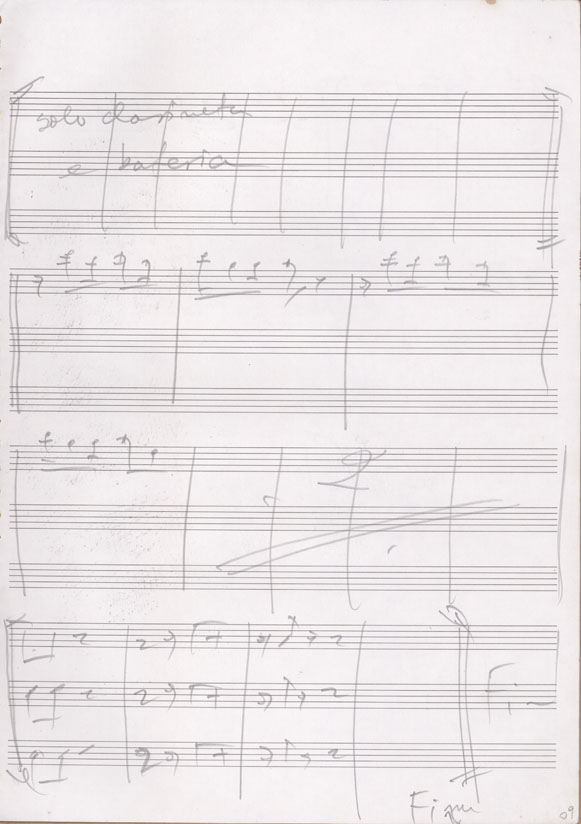 solo clarineta
e bateria
Fim
Fim
09